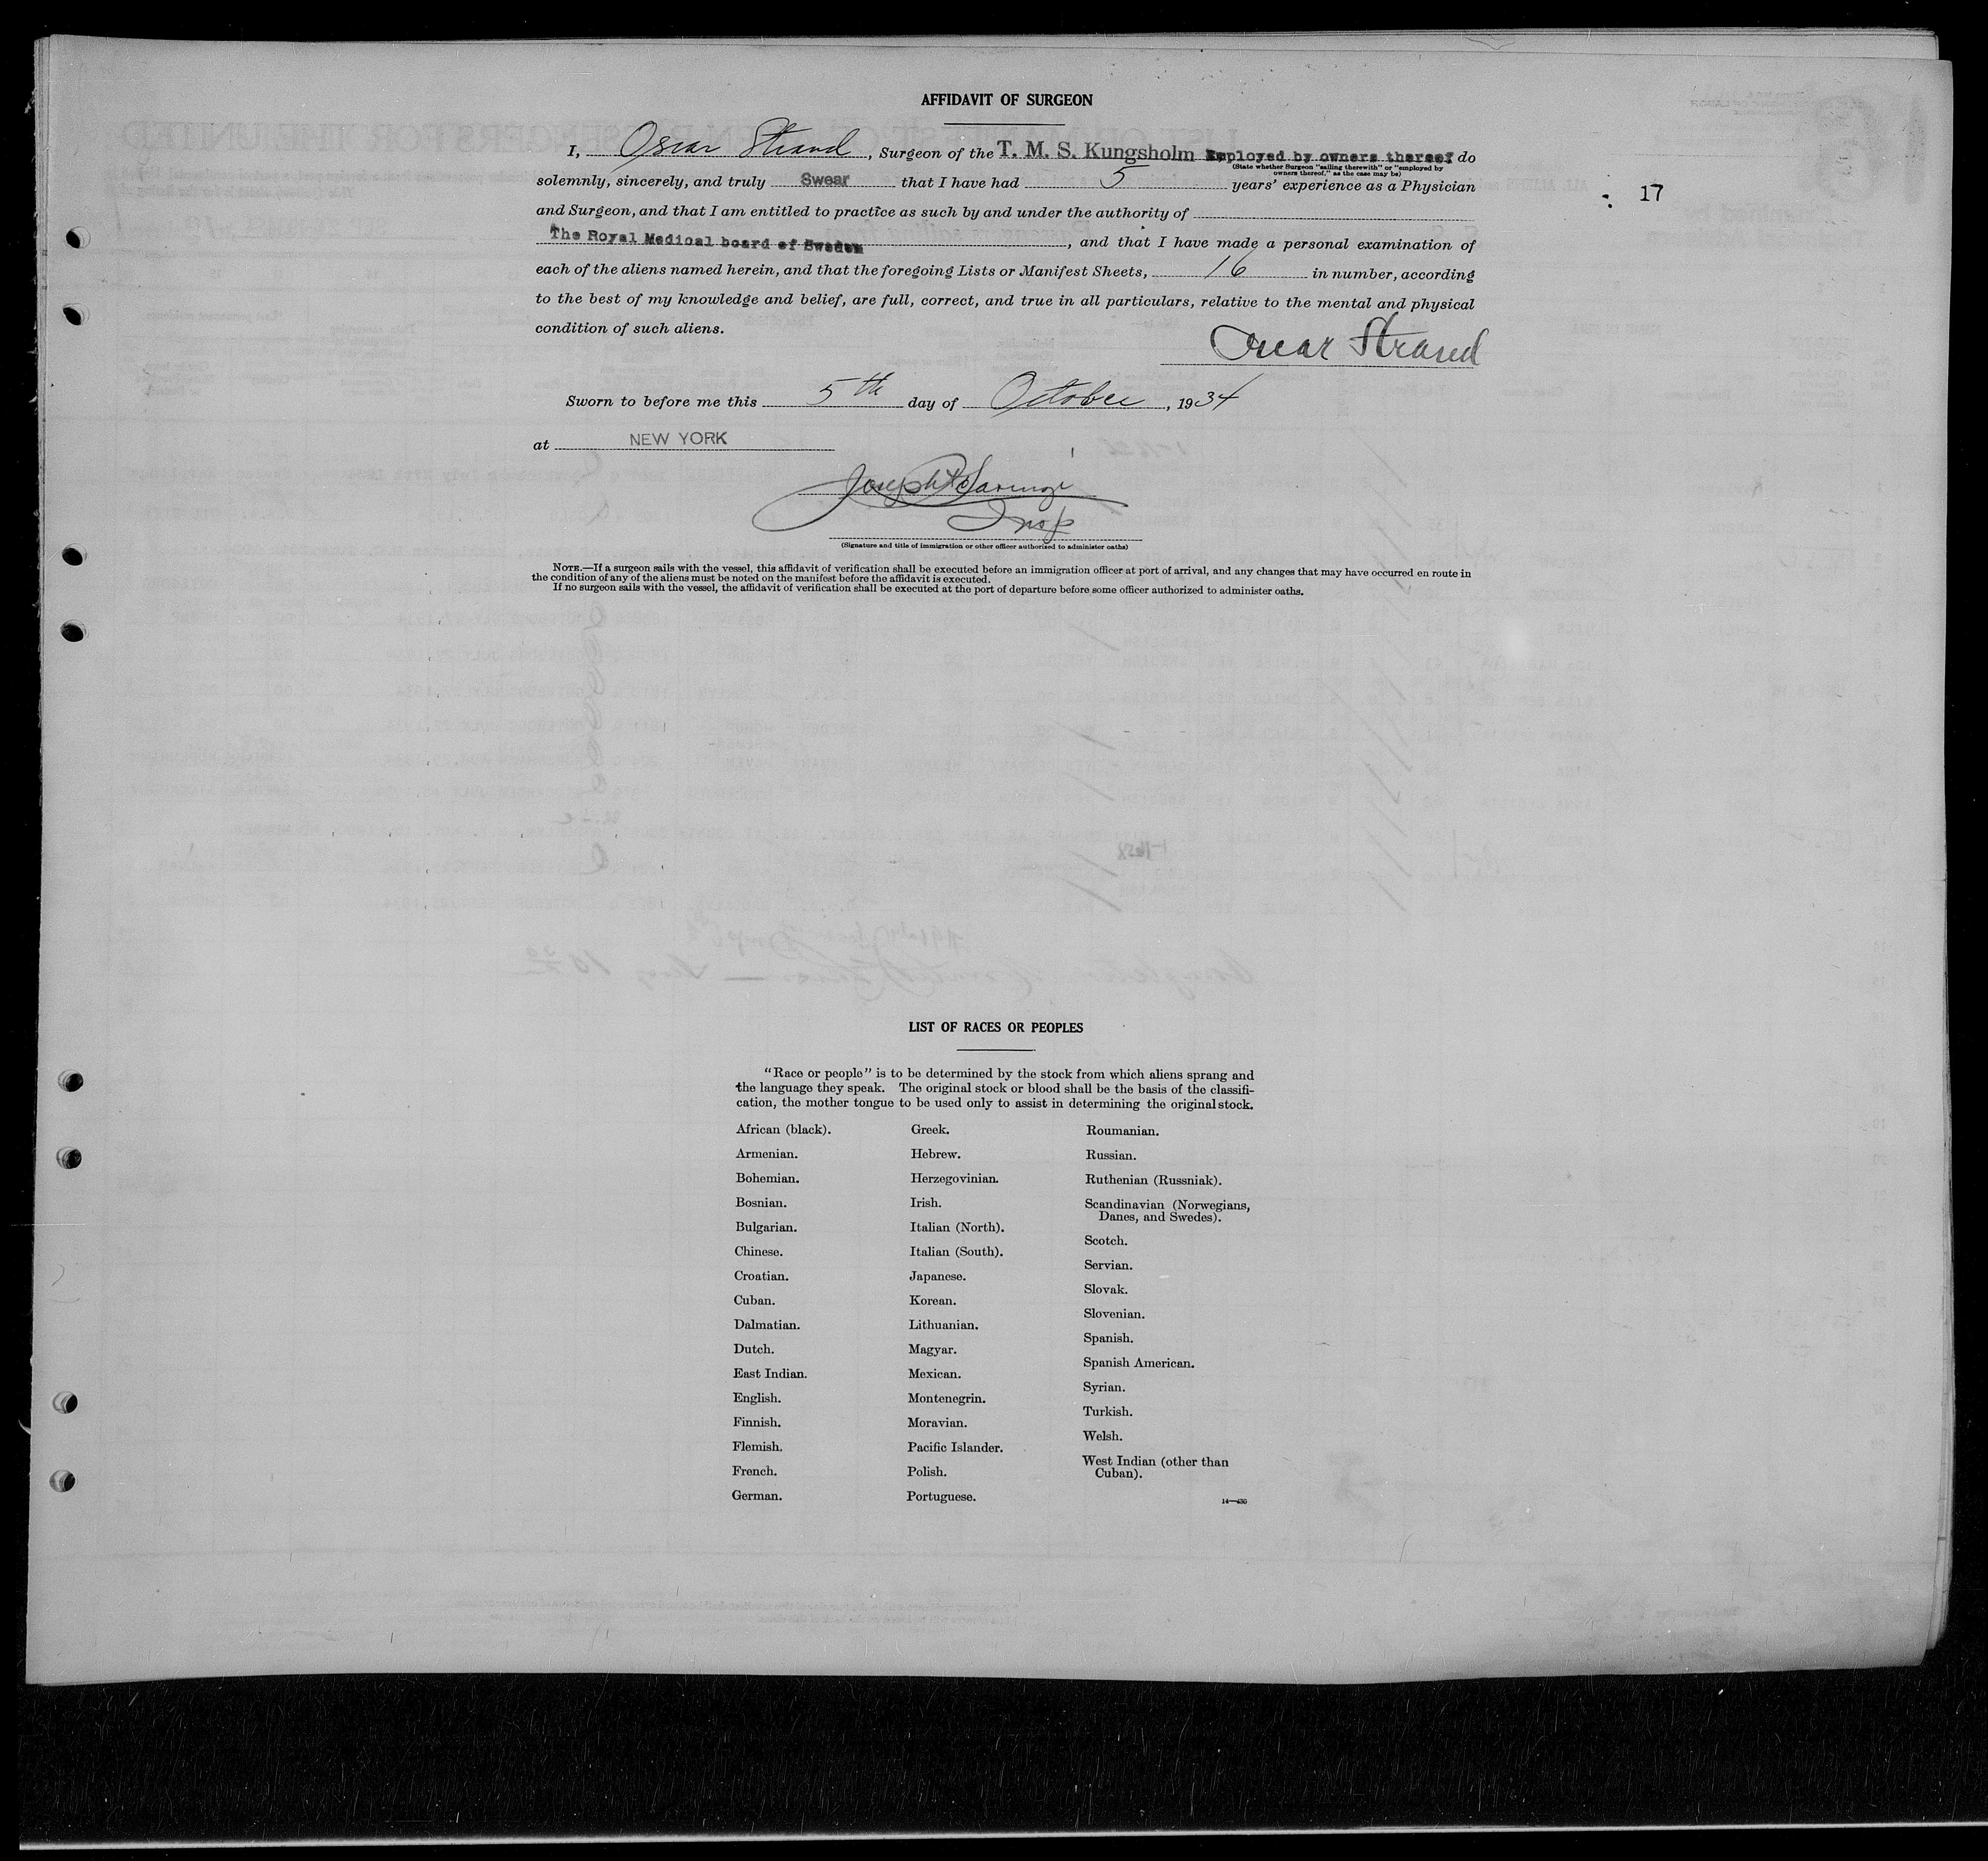 AFFIDAVIT OF SURGEON
I, Oscar Strand, Surgeon of the T. M. S. Kungsholm Employed by owners thereof do
(State whether Surgeon "sailing therewith" or "employed by
owners thereof," as the case may be)
solemnly, sincerely, and truly Swear that I have had 5 years' experience as a Physician
17
and Surgeon, and that I am entitled to practice as such by and under the authority of
The Royal Medical board of Sweden, and that I have made a personal examination of
each of the aliens named herein, and that the foregoing Lists or Manifest Sheets, 16 in number, according
to the best of my knowledge and belief, are full, correct, and true in all particulars, relative to the mental and physical
condition of such aliens.
Oscar Strand
Sworn to before me this 5th day of October, 1934
at NEW YORK
Joseph
Insp
(Signature and title of immigration or other officer authorized to administer oaths)
NOTE.—If a surgeon sails with the vessel, this affidavit of verification shall be executed before an immigration officer at port of arrival, and any changes that may have occurred en route in
the condition of any of the aliens must be noted on the manifest before the affidavit is executed.
If no surgeon sails with the vessel, the affidavit of verification shall be executed at the port of departure before some officer authorized to administer oaths.
LIST OF RACES OR PEOPLES
"Race or people" is to be determined by the stock from which aliens sprang and
the language they speak. The original stock or blood shall be the basis of the classifi-
cation, the mother tongue to be used only to assist in determining the original stock.
African (black).
Armenian.
Bohemian.
Bosnian.
Bulgarian.
Chinese.
Croatian.
Cuban.
Dalmatian.
Dutch.
East Indian.
English.
Finnish.
Flemish.
French.
German.
Greek.
Hebrew.
Herzegovinian.
Irish.
Italian (North).
Italian (South).
Japanese.
Korean.
Lithuanian.
Magyar.
Mexican.
Montenegrin.
Moravian.
Pacific Islander.
Polish.
Portuguese.
Roumanian.
Russian.
Ruthenian (Russniak).
Scandinavian (Norwegians,
Danes, and Swedes).
Scotch.
Servian.
Slovak.
Slovenian.
Spanish.
Spanish American.
Syrian.
Turkish.
Welsh.
West Indian (other than
Cuban).
14—430